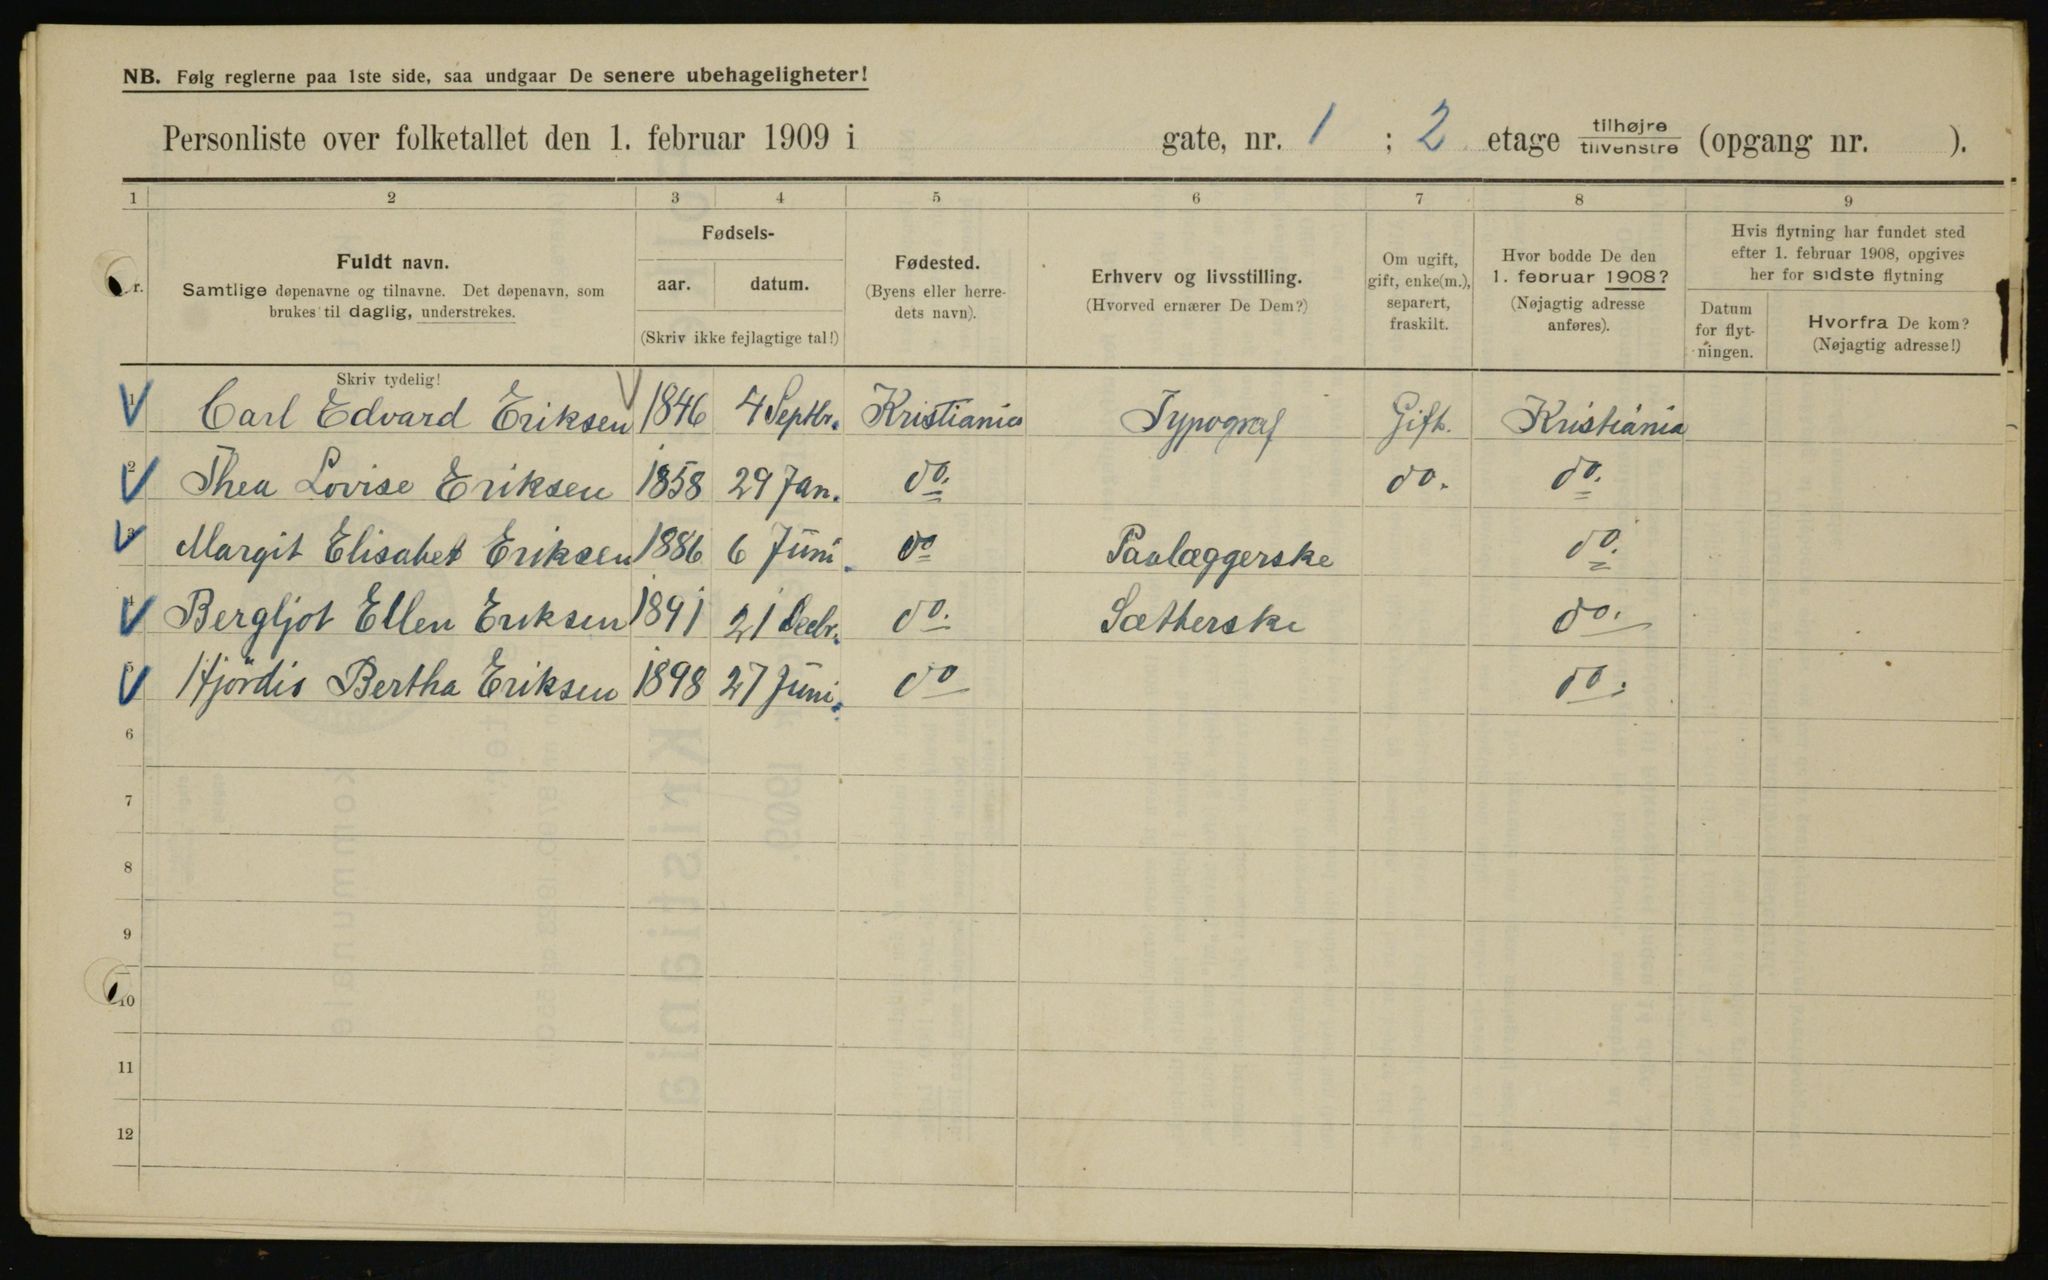 NB. Følg reglerne paa 1ste side, saa undgaar De senere ubehageligheter!
Personliste over folketallet den 1. februar 1909 i gate, nr. 1 ; 2 etage tilhøjre tilvenstre (opgang nr. ).
1 2 3 4 5 6 7 8 9
Fuldt navn.
Samtlige døpenavne og tilnavne. Det døpenavn, som
brukes til daglig, understrekes.
Skriv tydelig!
Fødsels-
aar. datum.
(Skriv ikke fejlagtige tal!)
Fødested.
(Byens eller herre-
dets navn).
Erhverv og livsstilling.
(Hvorved ernærer De Dem?)
Om ugift,
gift, enke(m.),
separert,
fraskilt.
Hvor bodde De den
1. februar 1908?
(Nøjagtig adresse
anføres).
Hvis flytning har fundet sted
efter 1. februar 1908, opgives
her for sidste flytning
Datum
for flyt-
ningen.
Hvorfra De kom?
(Nøjagtig adresse!)
1 Carl Edvard Eriksen 1846 4 Septbr. Kristiania Typograf Gift. Kristiania
2 Thea Lovise Eriksen 1858 29 Jan. do. do. do.
3 Margit Elisabet Eriksen 1886 6 Juni do Paalæggerske do.
4 Bergljot Ellen Eriksen 1891 21 Decbr. do. Sætterske do.
5 Hjördis Bertha Eriksen 1898 27 Juni. do do.
6
7
8
9
10
11
12